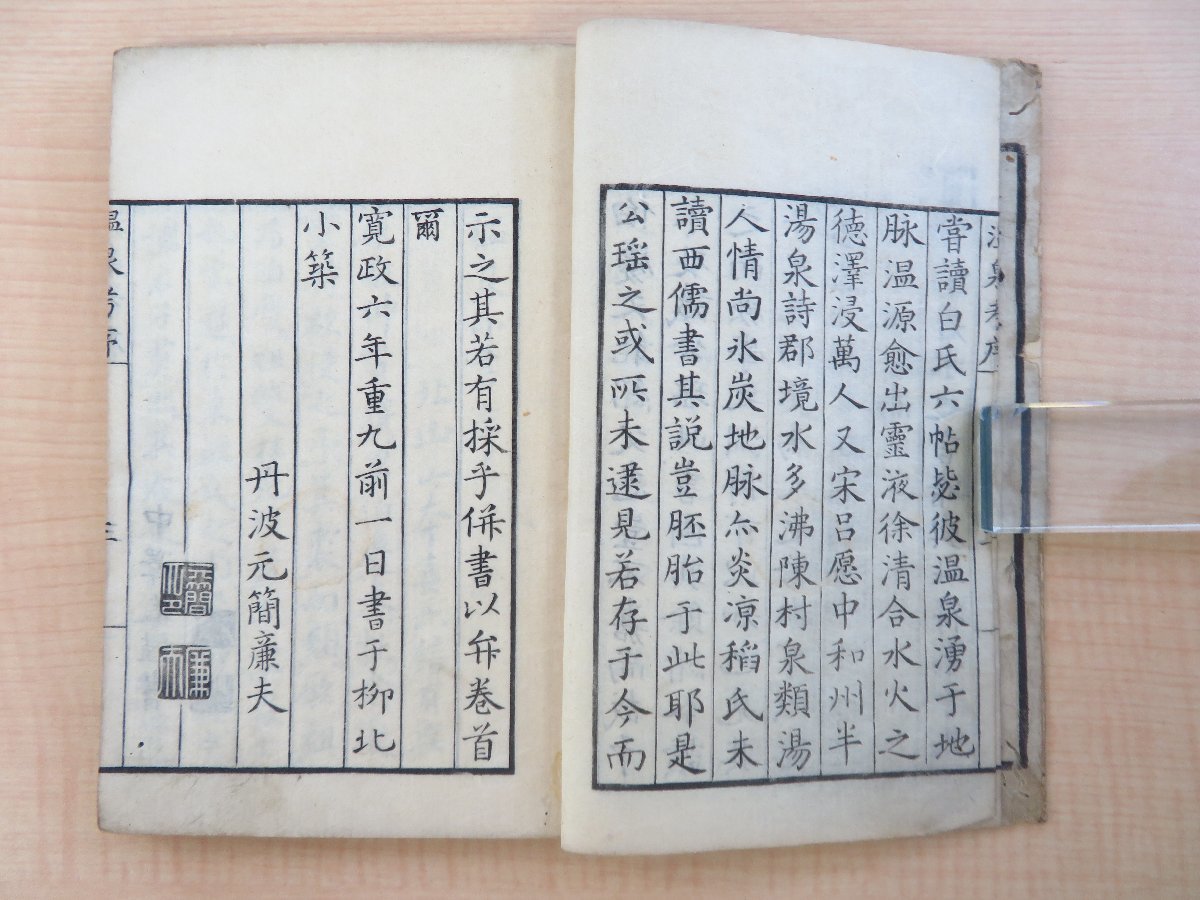 嘗讀白氏六帖毖彼温泉湧于地
脉温源愈出靈液徐清合水火之
德澤浸萬人又宋呂愿中和州半
湯泉詩郡境水多沸陳村泉類湯
人情尚氷炭地脉尒炎凉稻氏未
讀西儒書其説豈胚胎于此耶是
公瑶之或所未逮見若存于今而
示之其若有採乎併書以弁卷首
爾
寛政六年重九前一日書于柳北
小築
丹波元簡廉夫
元簡之印
廉夫
三